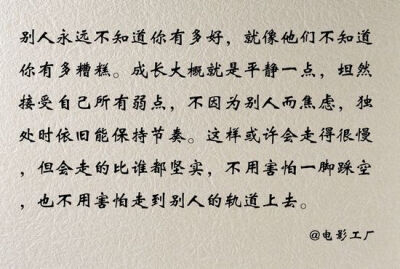 别人永远不知道你有多好，就像他们不知道
你有多糟糕。成长大概就是平静一点，坦然
接受自己所有弱点，不因为别人而焦虑，独
处时依旧能保持节奏。这样或许会走得很慢
，但会走的比谁都坚实，不用害怕一脚踩空
，也不用害怕走到别人的轨道上去。
@电影工厂